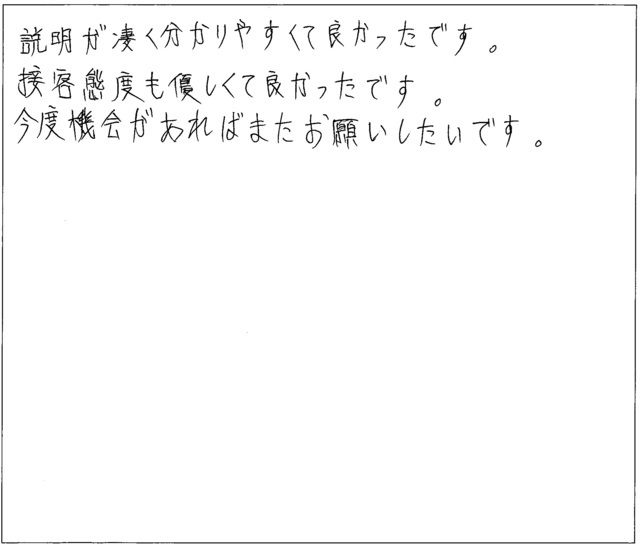 説明が凄く分かりやすくて良かったです。
接客態度も優しくて良かったです。
今度機会があればまたお願いしたいです。